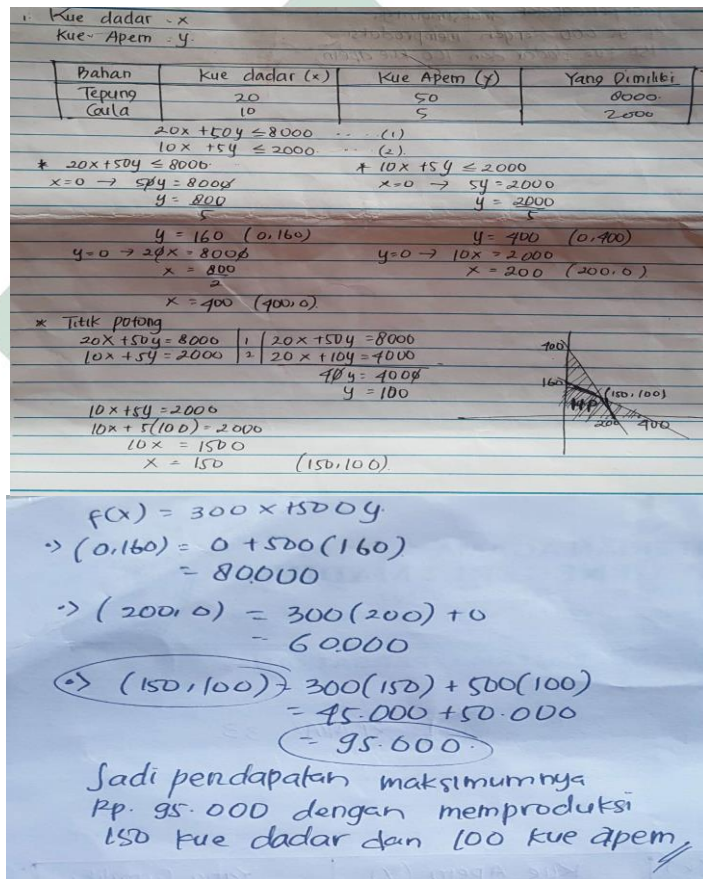 1. Kue dadar : x
Kue Apem : y.
Bahan Kue dadar (x) Kue Apem (y) Yang Dimiliki
Tepung 20 50 8000
Gula 10 5 2000
20x + 50y ≤ 8000 ... (1)
10x + 5y ≤ 2000 ... (2)
* 20x + 50y ≤ 8000 * 10x + 5y ≤ 2000
x=0 → 50y = 8000 x=0 → 5y = 2000
y = 800/5 y = 2000/5
y = 160 (0,160) y = 400 (0,400)
y=0 → 20x = 8000 y=0 → 10x = 2000
x = 800/2 x = 200 (200,0)
x = 400 (400,0)
* Titik potong
20x + 50y = 8000 | 1 | 20x + 50y = 8000
10x + 5y = 2000 | 2 | 20x + 10y = 4000
40y = 4000
y = 100
10x + 5y = 2000
10x + 5(100) = 2000
10x = 1500
x = 150 (150,100)
400
160
(150,100)
HP
200 400
f(x) = 300x + 500y.
•> (0,160) = 0 + 500(160)
= 80000
•> (200,0) = 300(200) + 0
= 60000
•> (150,100) = 300(150) + 500(100)
= 45.000 + 50.000
= 95.000.
Jadi pendapatan maksimumnya
Rp. 95.000 dengan memproduksi
150 kue dadar dan 100 kue apem